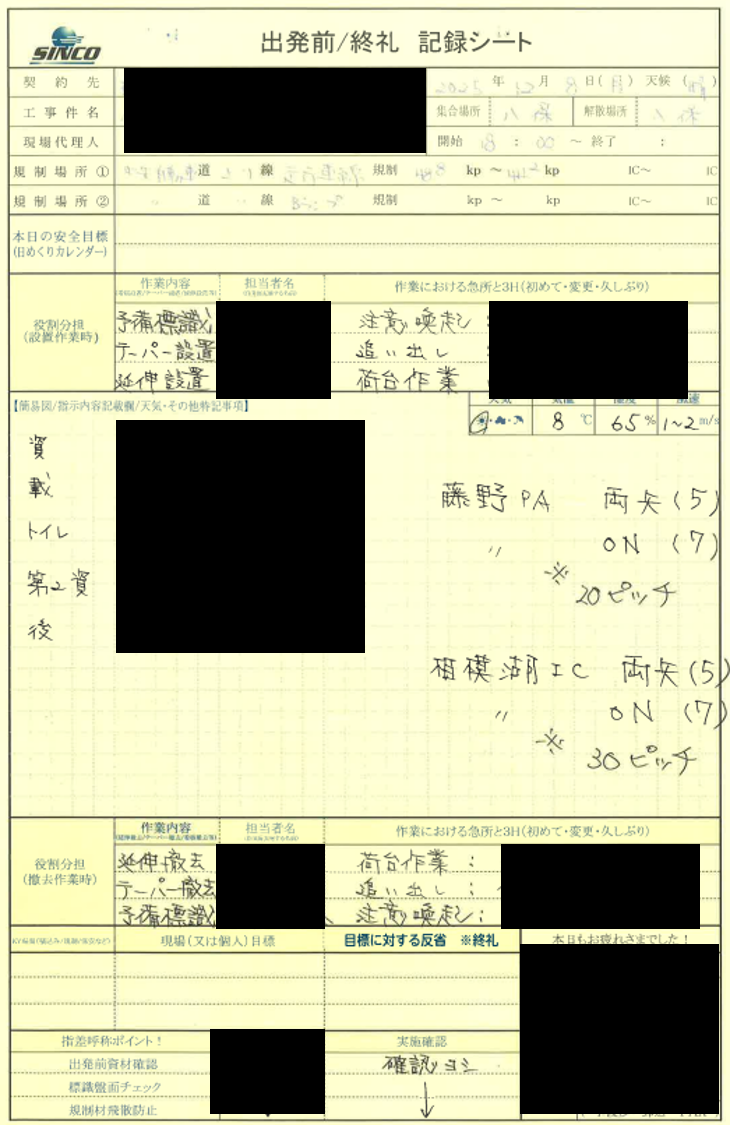 SINCO
出発前/終礼 記録シート
契約先
2025 年 12 月 8 日(月) 天候 (晴)
工事件名
集合場所 八保 解散場所 八保
現場代理人
開始 8 : 00 ～ 終了 :
規制場所① 道 線 規制 kp ～ kp IC～ IC
規制場所② 〃 道 〃 線 規制 kp ～ kp IC～ IC
本日の安全目標
(日めくりカレンダー)
作業内容 担当者名 作業における急所と3H(初めて・変更・久しぶり)
役割分担
(設置作業時)
予備標識 注意喚起 :
テーパー設置 追い出し :
延伸設置 荷台作業
【簡易図/指示内容記載欄/天気・その他特記事項】
8 ℃ 65 % 1~2 m/s
資
載
トイレ
第2資
後
藤野PA 両矢(5)
〃 ON (7)
※ 20ピッチ
相模湖IC 両矢(5)
〃 ON (7)
※ 30ピッチ
作業内容 担当者名 作業における急所と3H(初めて・変更・久しぶり)
役割分担
(撤去作業時)
延伸撤去 荷台作業 :
テーパー撤去 追い出し :
予備標識 注意喚起 :
現場(又は個人)目標 目標に対する反省 ※終礼 本日もお疲れさまでした!
指差呼称ポイント! 実施確認
出発前資材確認 確認ヨシ
標識盤面チェック
規制材飛散防止